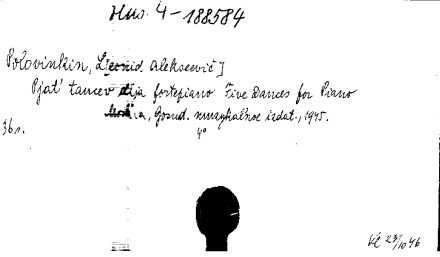 Mus. 4-188584
Polovinkin, L[eonid Alekseevič]
Pjat' tancev dlja fortepiano Five Dances for Piano
Moskva, Gosud. muzykal'noe izdat., 1945.
36 s. 4°
Vl 23/10 46